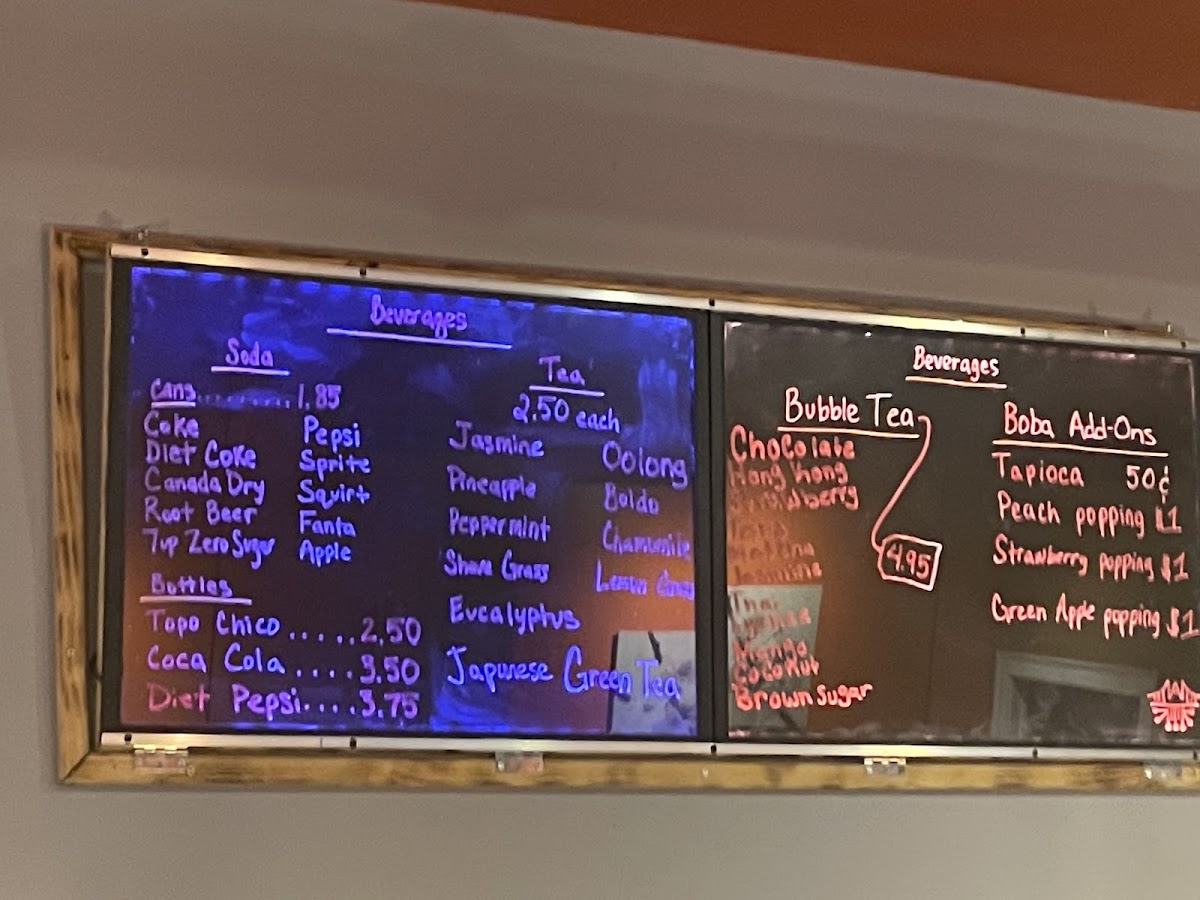 Beverages
Soda
Cans..........1.85
Coke
Diet Coke
Canada Dry
Root Beer
7up Zero Sugar
Pepsi
Sprite
Squirt
Fanta
Apple
Bottles
Topo Chico.....2.50
Coca Cola....3.50
Diet Pepsi....3.75
Tea
2.50 each
Jasmine
Pineapple
Peppermint
Grass
Eucalyptus
Japanese Green Tea
Oolong
Boldo
Chamomile
Lemon Grass
Beverages
Bubble Tea
4.95
Chocolate
Hong Kong
Taro
Matcha
Jasmine
Thai
Lychee
Mango
Coconut
Brown Sugar
Boba Add-Ons
Tapioca 50¢
Peach popping $1
Strawberry popping $1
Green Apple popping $1